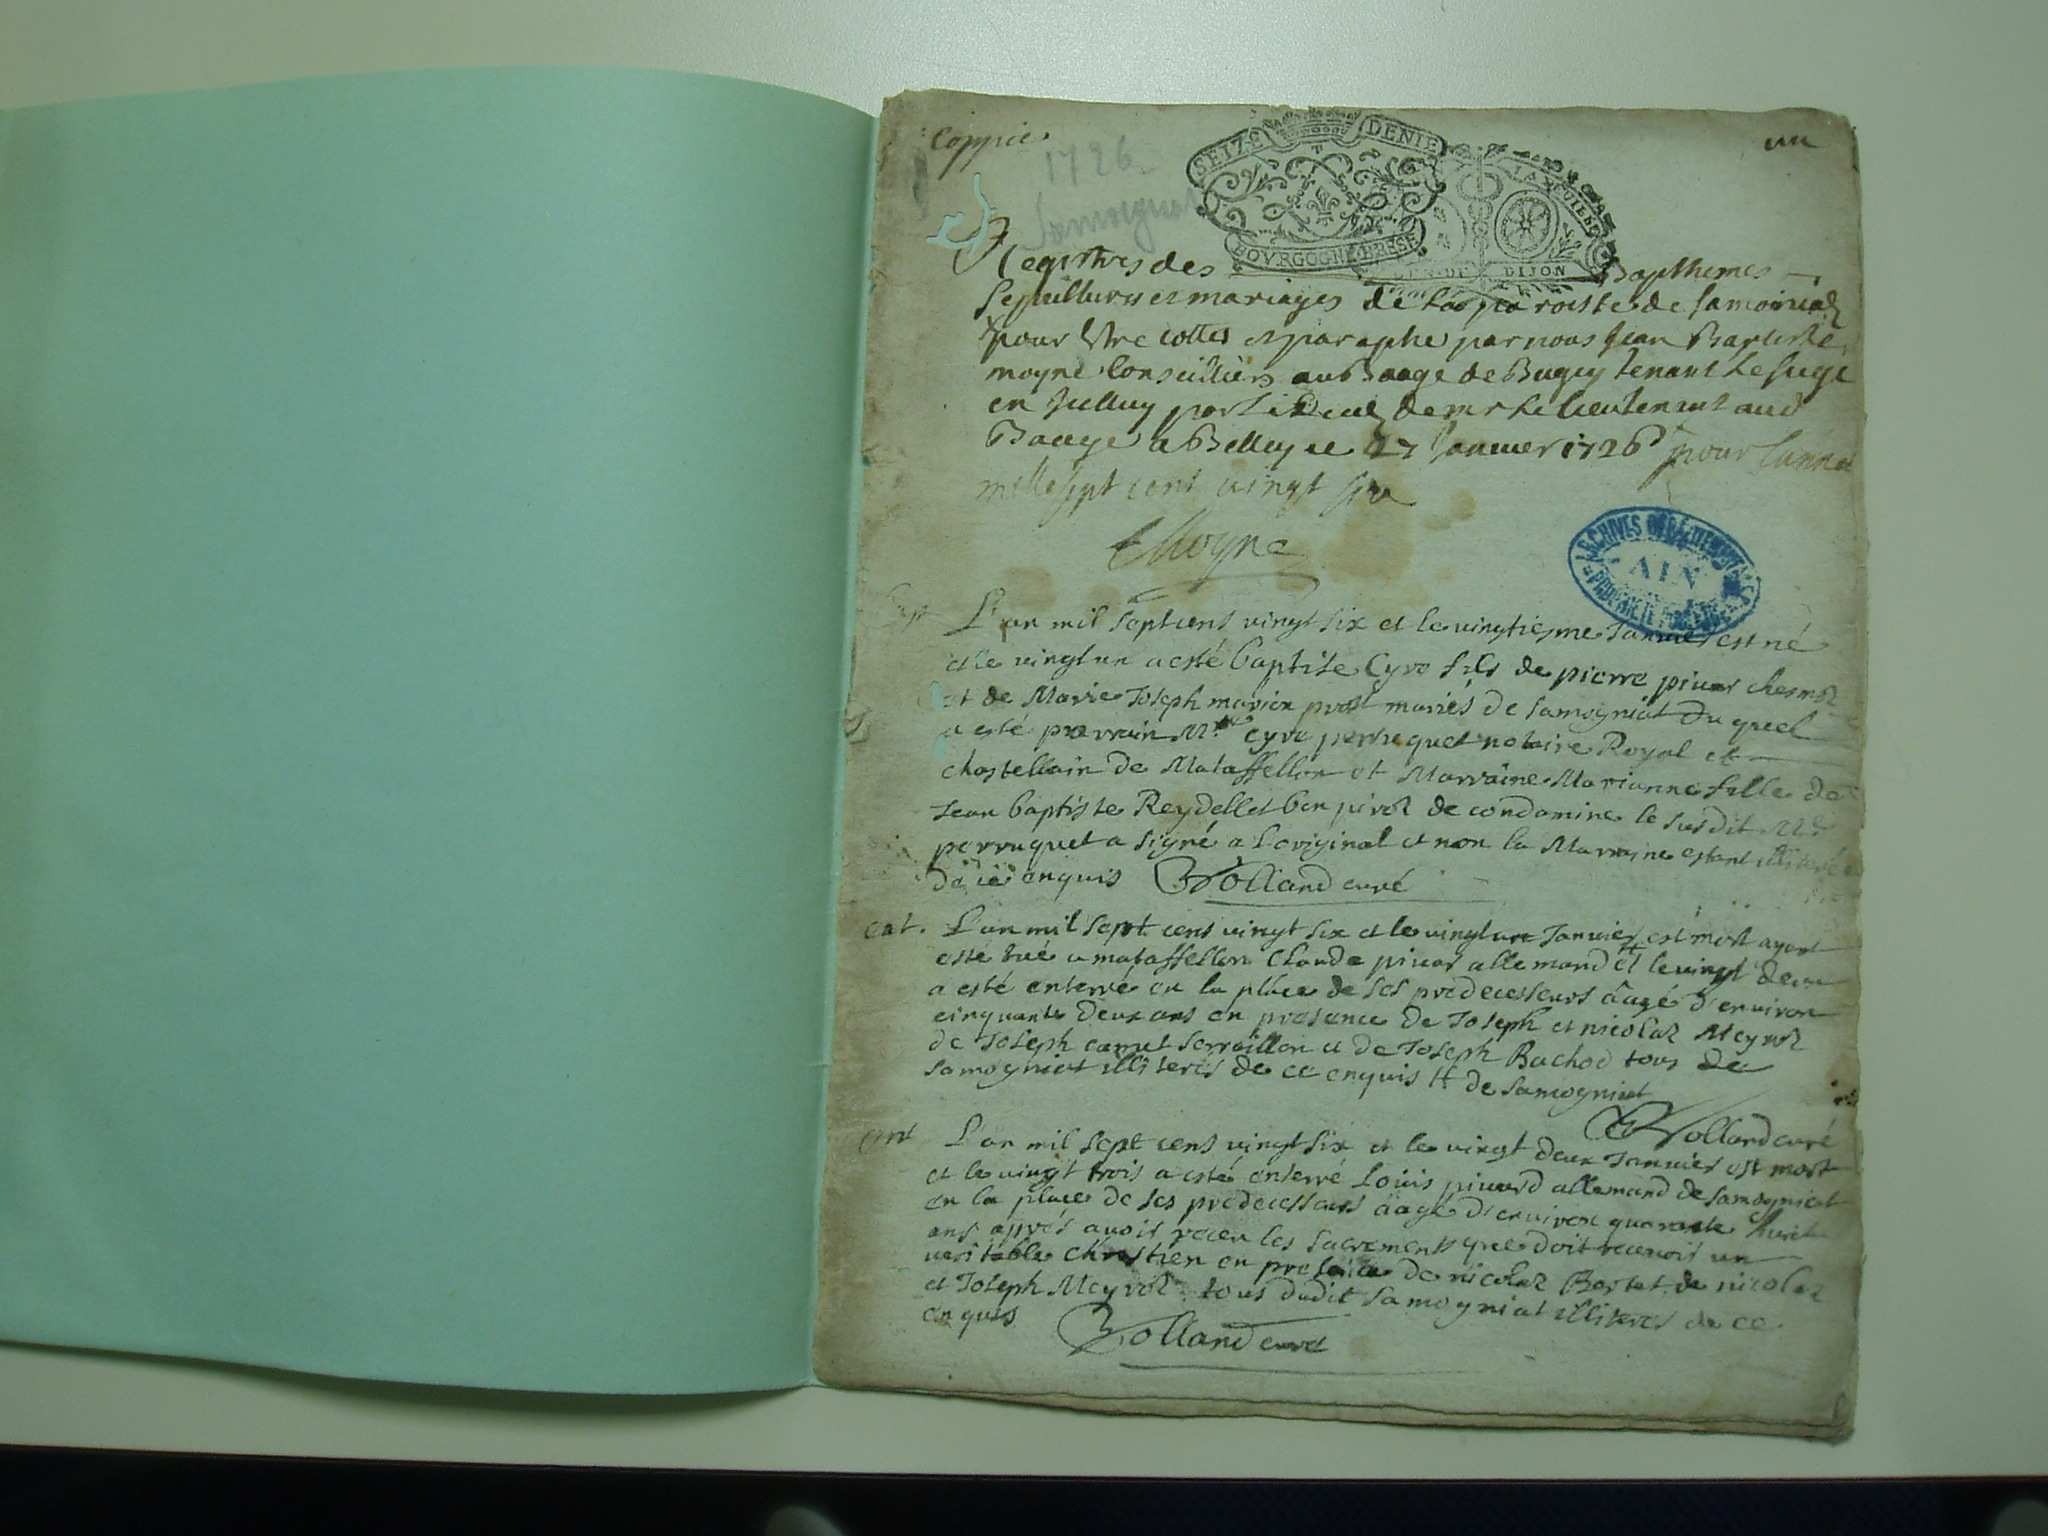 Coppie
un
1726
Samognat
SEIZE DENIE
BOVRGOGNE BRESSE
DIJON
Registres des Bapthemes
sepultures et mariages de la paroisse de samoniat
pour Estre cottes et paraphe par nous Jean Baptiste
moyne Conseillier au Baage de Bugey tenant le siege
en de mr le lieutenant aud
Baage a Belley ce 27 Janvier 1726 pour lannee
mille sept cent vingt six
Moyne
ARCHIVES DEPARTEMENTALES
AIN
PROPRIETE PUBLIQUE
Bapt L'an mil sept cens vingt six et le vingtiesme Janvier est né
et le vingt un a esté baptise Cyre fils de pierre pivar
et de Marie Joseph mariex prost mariés de samogniat du quel
a esté parrain Mre cyre perruquet notaire Royal et
chastellain de Mataffellon et Marraine Marianne fille de
Jean baptiste Reydellet de condamine le susdit Mre
perruquet a signé a l'original et non la Marraine estant illiterée
de ce enquis Rolland curé
ent. L'an mil sept cens vingt six et le vingt un Janvier est mort ayant
esté tué a mataffellon Claude pivar allemand # et le vingt deux
a esté enterré en la place de ses predecesseurs âagé d'environ
cinquante deux ans en presance de Joseph et nicolaz Meynoz
de Joseph camet serraillon et de Joseph Bachod tous de
samogniat illiterés de ce enquis # de samogniat
Rolland curé
ent L'an mil sept cens vingt six et le vingt deux Janvier est mort
et le vingt trois a esté enterré Louis pivard allemand de samogniat
en la place de ses predecesseurs âagé d'environ quarante huit
ans apprés avoir receu les sacrements que doit recevoir un
veritable chrestien en presence de nicolaz Bertet de nicolaz
et Joseph Meynoz tous dudit samogniat illiterés de ce
enquis Rolland curé